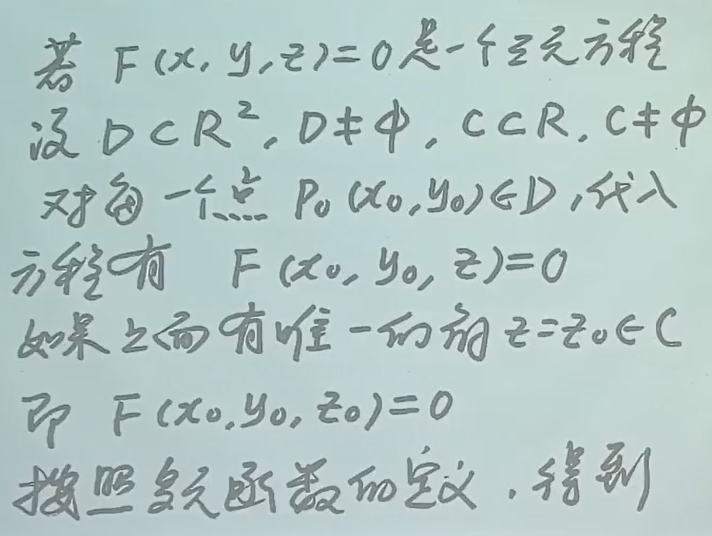 若 F(x, y, z)=0是一个三元方程
设 D⊂R², D≠ϕ, C⊂R, C≠ϕ
对每一个点 P₀(x₀,y₀)∈D,代入
方程有 F(x₀, y₀, z)=0
如果上面有唯一的解 z=z₀∈C
即 F(x₀,y₀,z₀)=0
按照多元函数的定义,得到